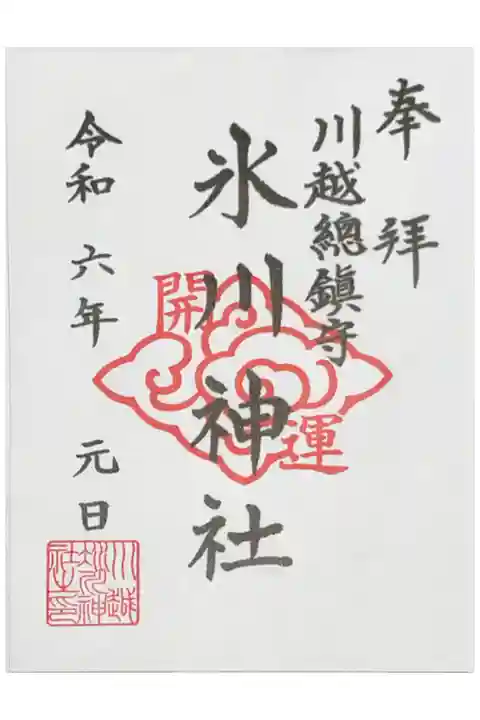 奉拜
川越總鎮守
氷川神社
開運
令和 六年 元日
川越氷川神社之印